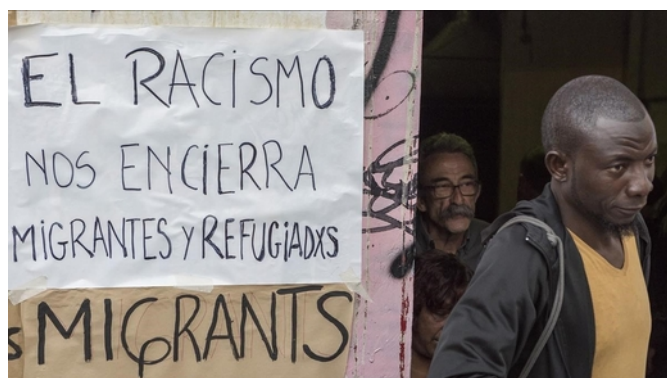 EL RACiSMO
NOS ENCiERRA
MiGRANTES Y REFUGiADXS
s MIGRANTS